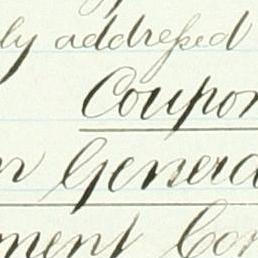 ly addressed
Coupon
r General
ment Cor